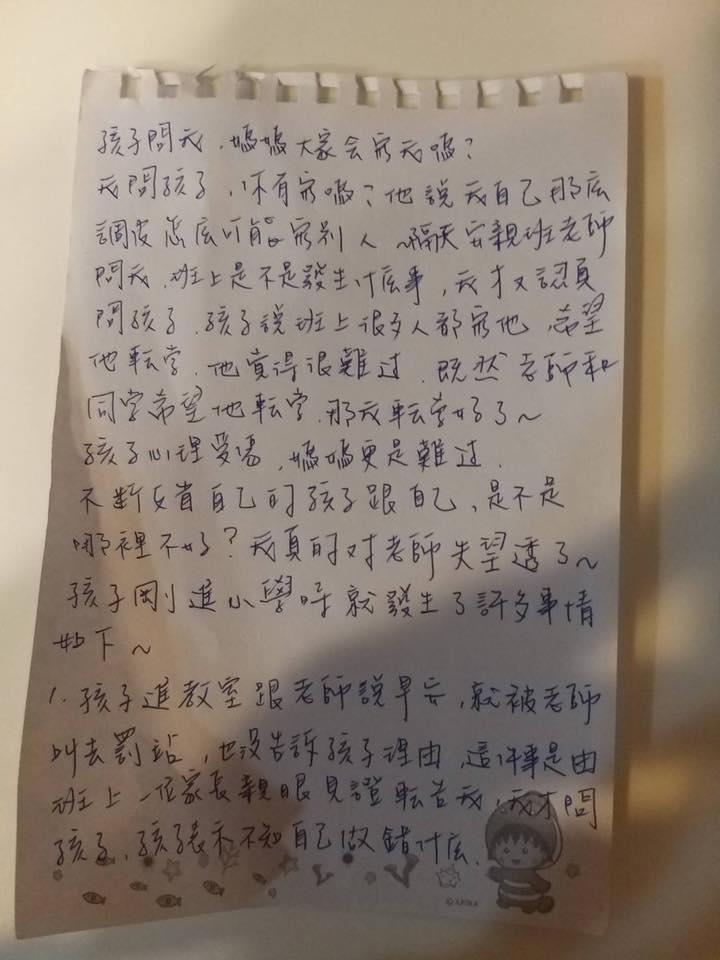 孩子問我，媽媽大家会窮我嗎？
我問孩子，你有窮嗎？他說我自己那庅
調皮怎庅可能窮別人～隔天安親班老師
問我，班上是不是發生什庅事，我才又認真
問孩子，孩子說班上很多人都窮他，希望
他転学，他覺得很難过，既然老師和
同学希望他転学，那我転学好了～
孩子心理受傷，媽媽更是難过，
不斷反省自己的孩子跟自己，是不是
哪裡不好？我真的对老師失望透了～
孩子剛進小學時就發生了許多事情
如下～
1. 孩子進教室跟老師說早安，就被老師
叫去罰站，也沒告訴孩子理由，這件事是由
班上一位家長親眼見證転告我，我才問
孩子，孩表示不知自己做錯什庅。